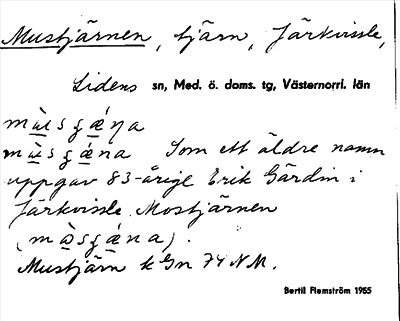 Mustjärnen, tjärn, Järkvissle,
Lidens sn, Med. ö. doms. tg, Västernorrl. län
mùsʒǽŋa
mùsʒǽna Som ett äldre namn
uppgav 83-årige Erik Gärdin i
Järkvissle Mostjärnen
(mòsʒǽna).
Mustjärn k Gn 74 NM.
Bertil Flemström 1955